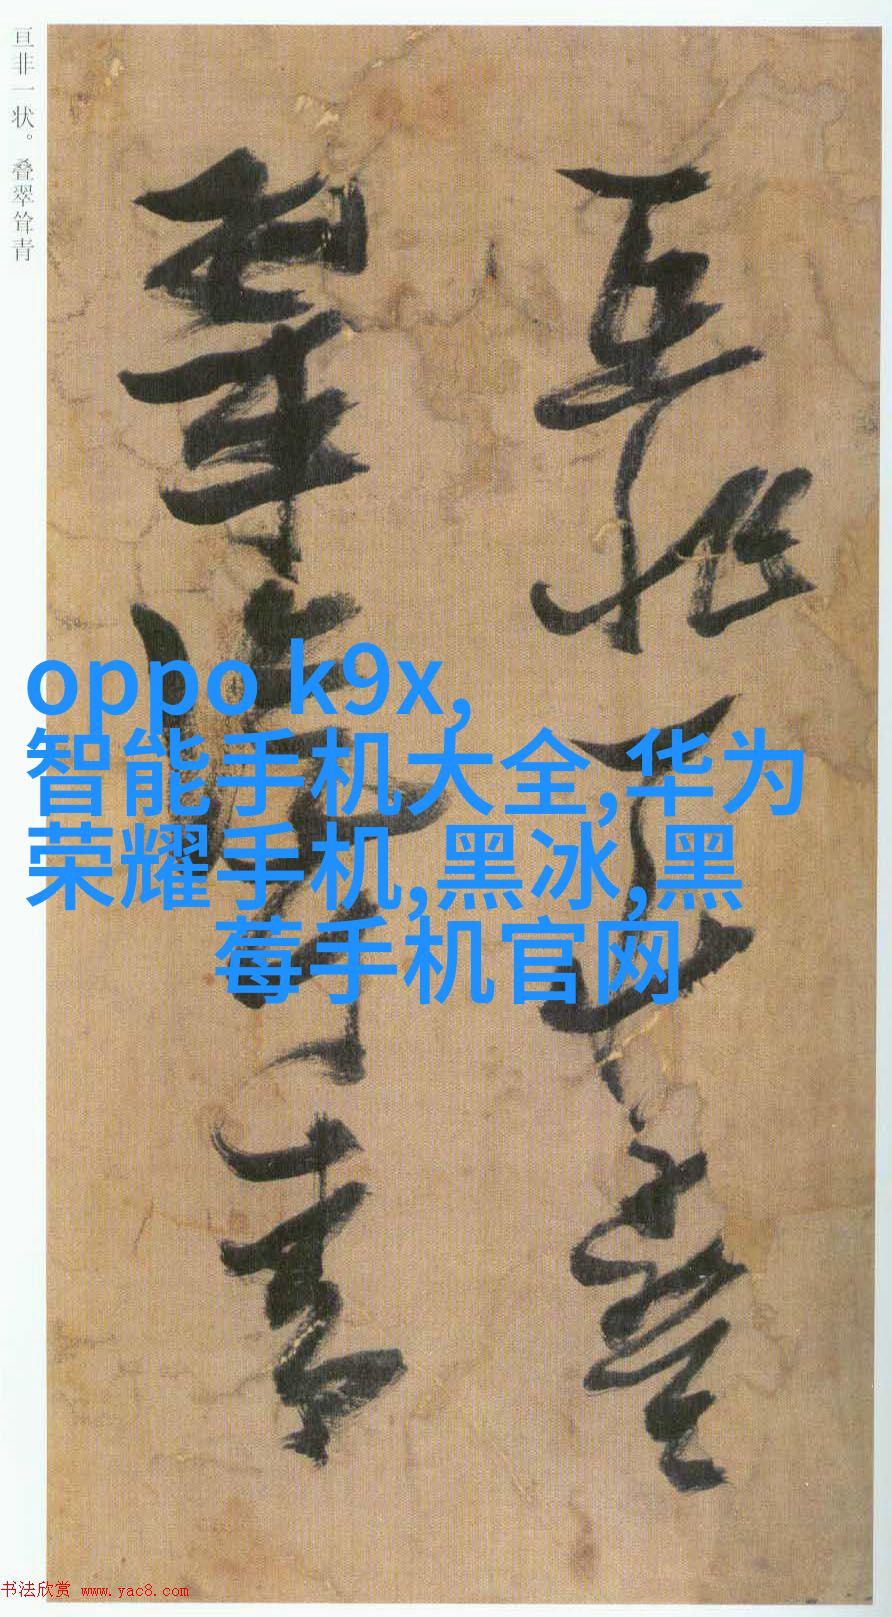 亘非一状。叠翠耸青
oppo k9x,
智能手机大全,华为
荣耀手机,黑冰,黑
莓手机官网
书法欣赏 www.yac8.com